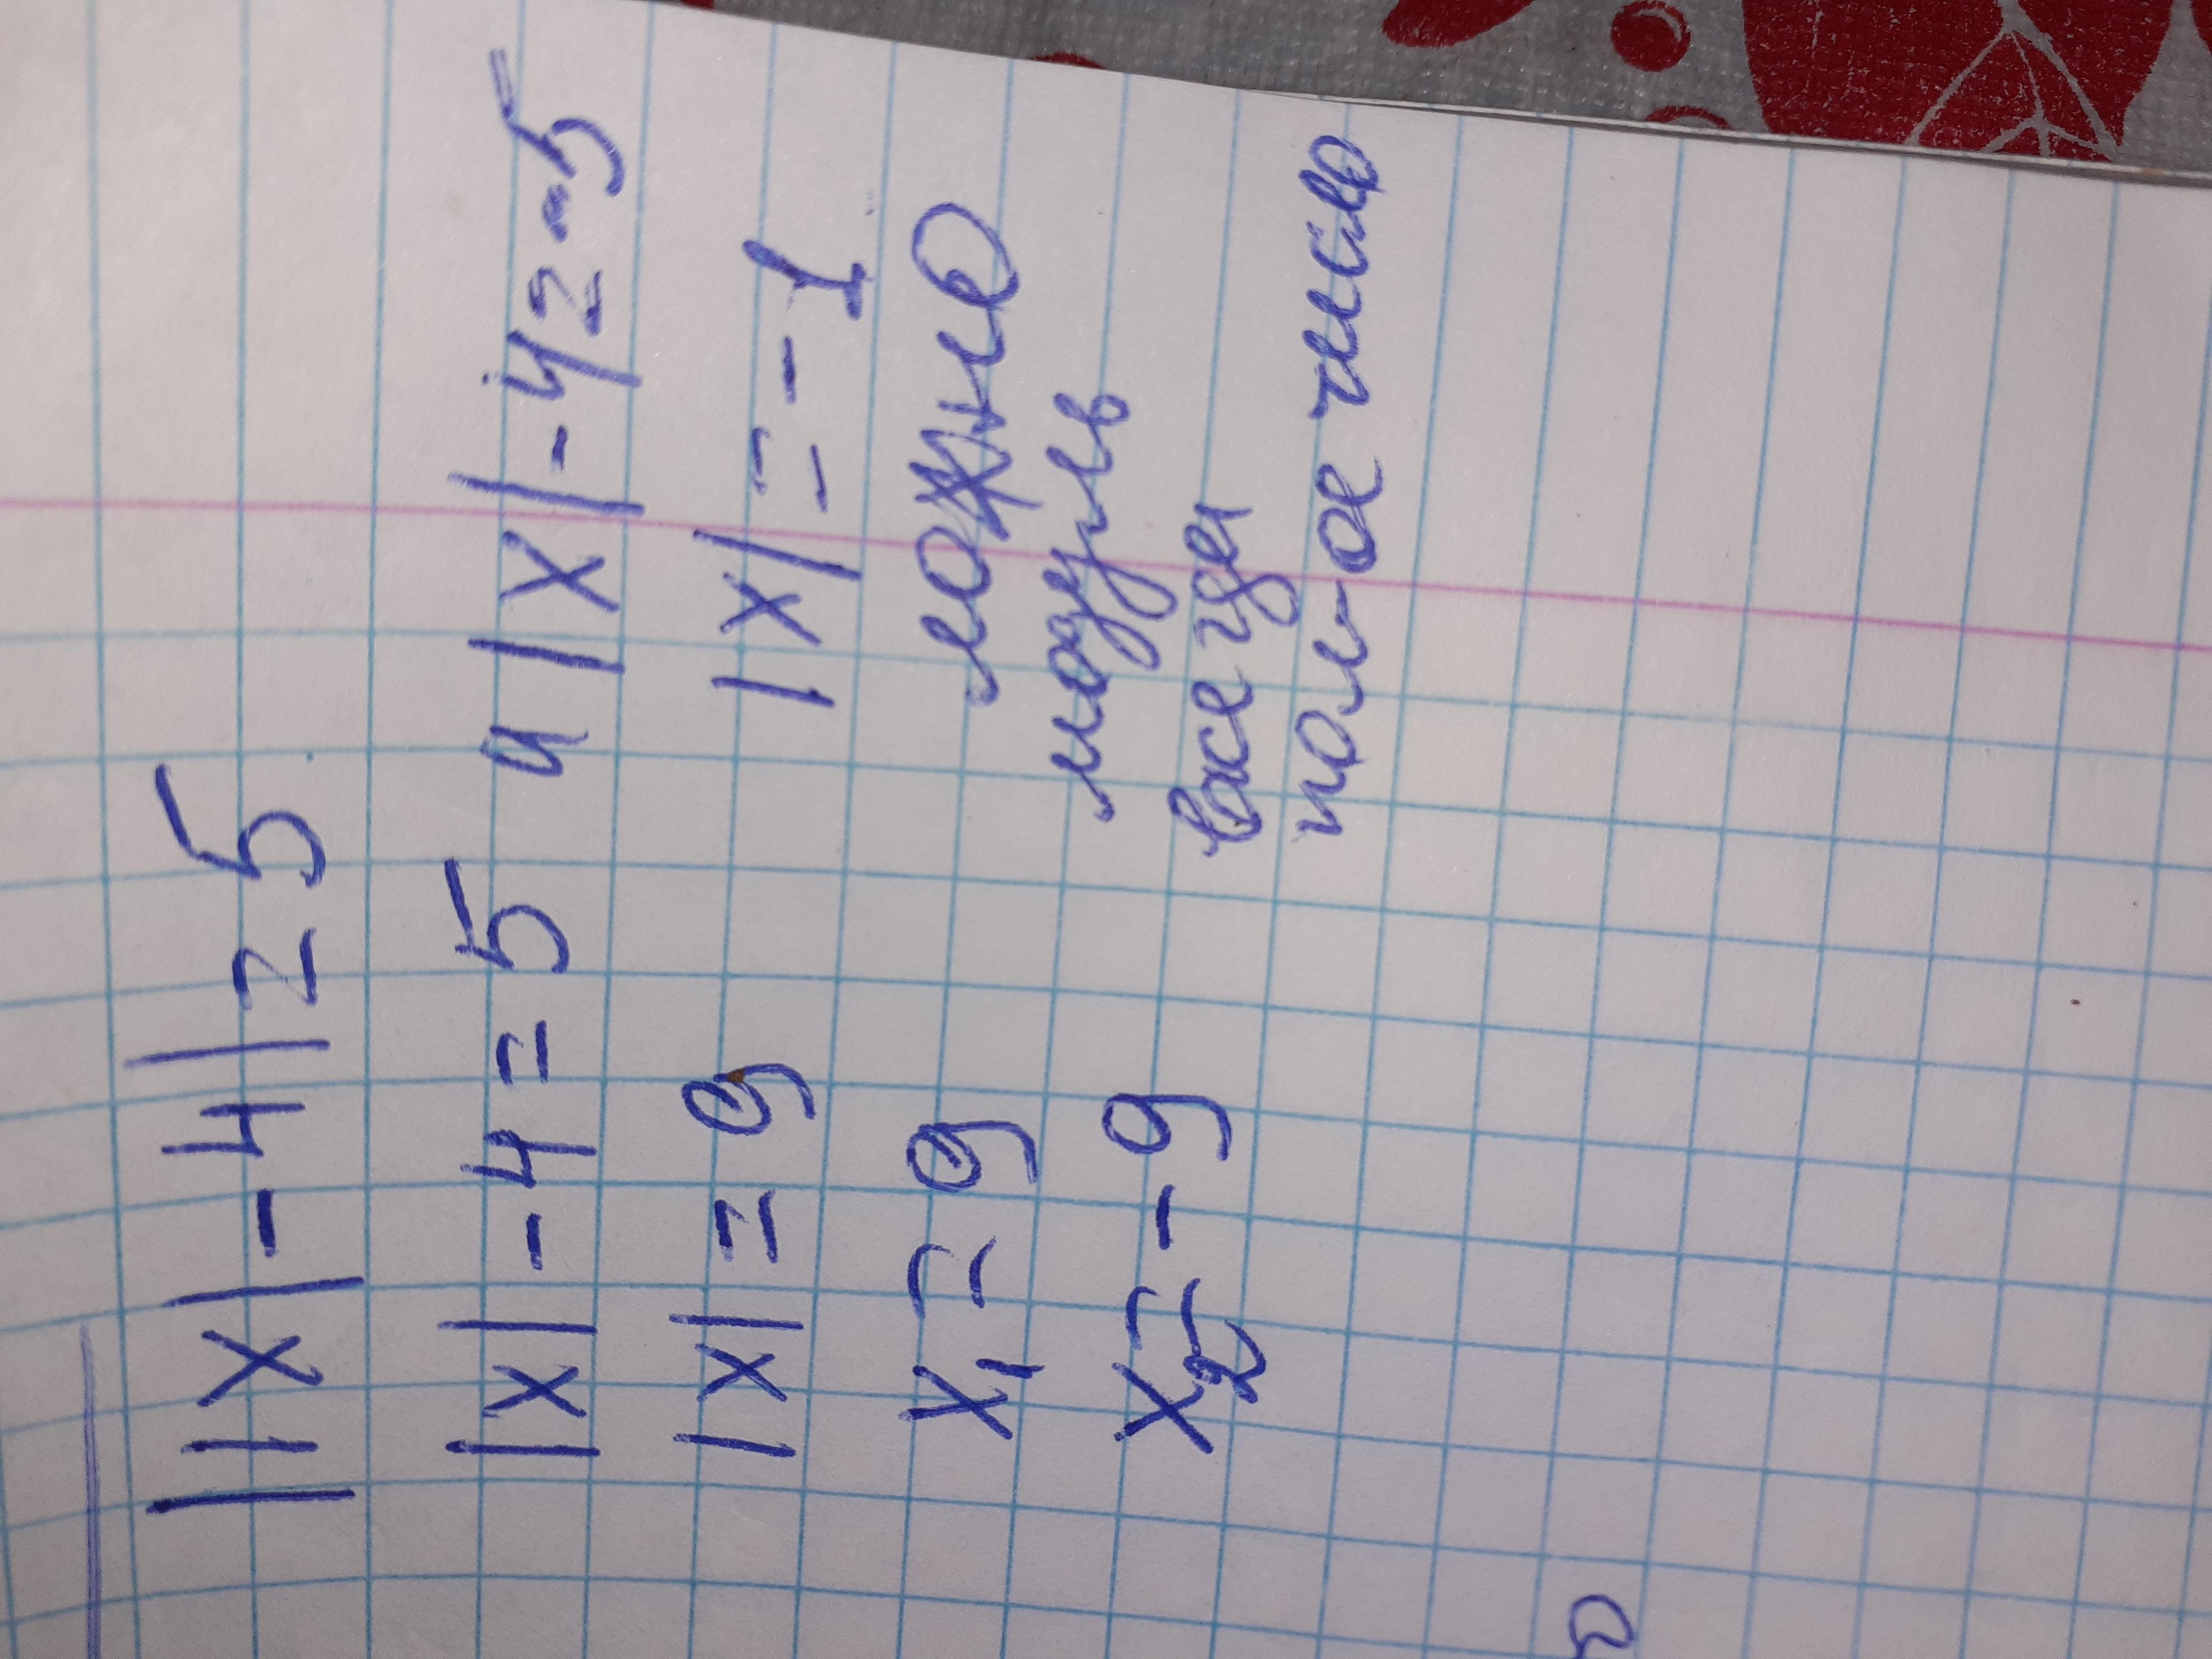 ||x|-4|=5
|x|-4=5 и |x|-4=-5
|x|=9 |x|=-1
x₁=9 ложно
x₂=-9 модуль
всегда
пол-ое число